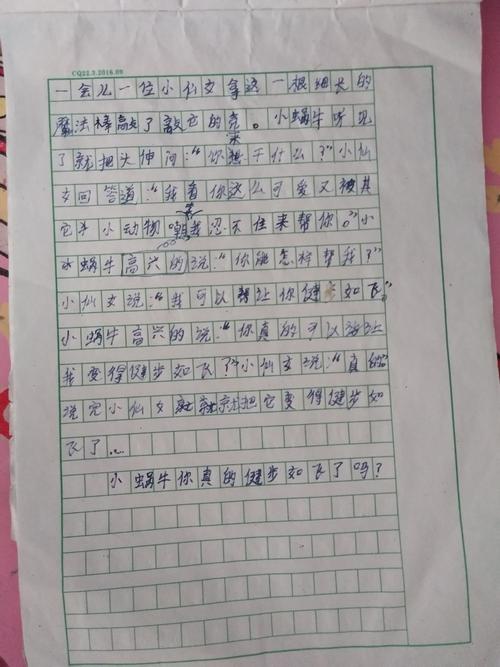 CQ22.3.2016.08
一会儿一位小仙女拿这一根细长的
魔法棒敲了敲它的壳。小蜗牛听见
了就把头伸来问：“你想干什么？”小仙
女回答道：“我看你这么可爱又被其
它小动物嘲笑我忍不住来帮你。”小
蜗牛高兴的说：“你能怎样帮我？”
小仙女说：“我可以帮让你健步如飞。”
小蜗牛高兴的说：“你真的可以让
我变得健步如飞？”小仙女说：“真的。”
说完小仙女就就就把它变得健步如
飞了……
小蜗牛你真的健步如飞了吗？